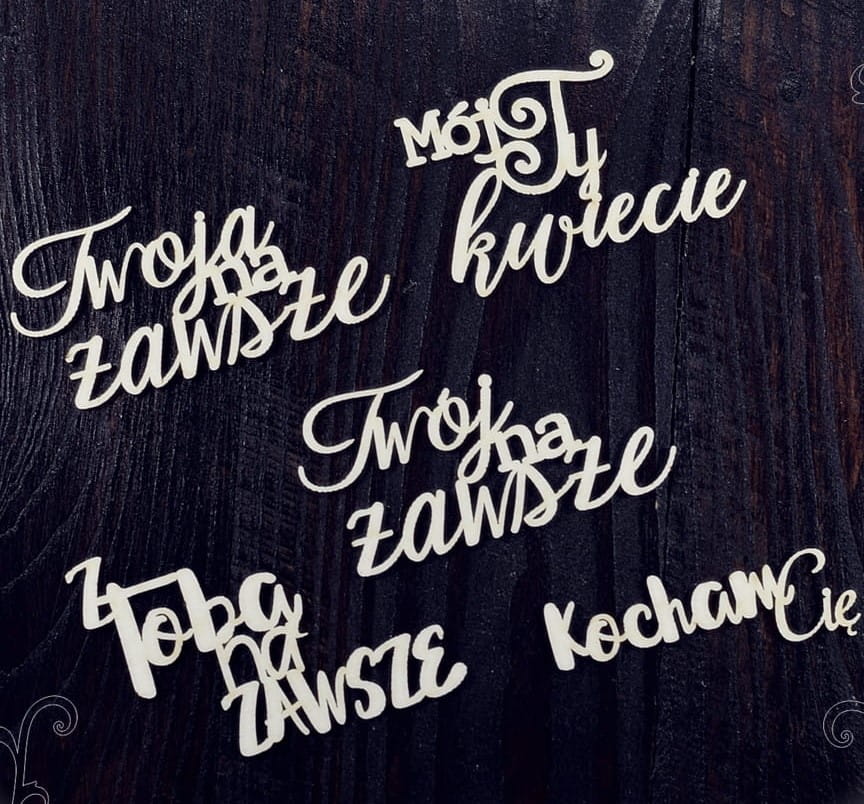 Mój Ty
kwiecie
Twoja
na
zawsze
Twój na
zawsze
z Tobą
na
zawsze
Kocham Cię